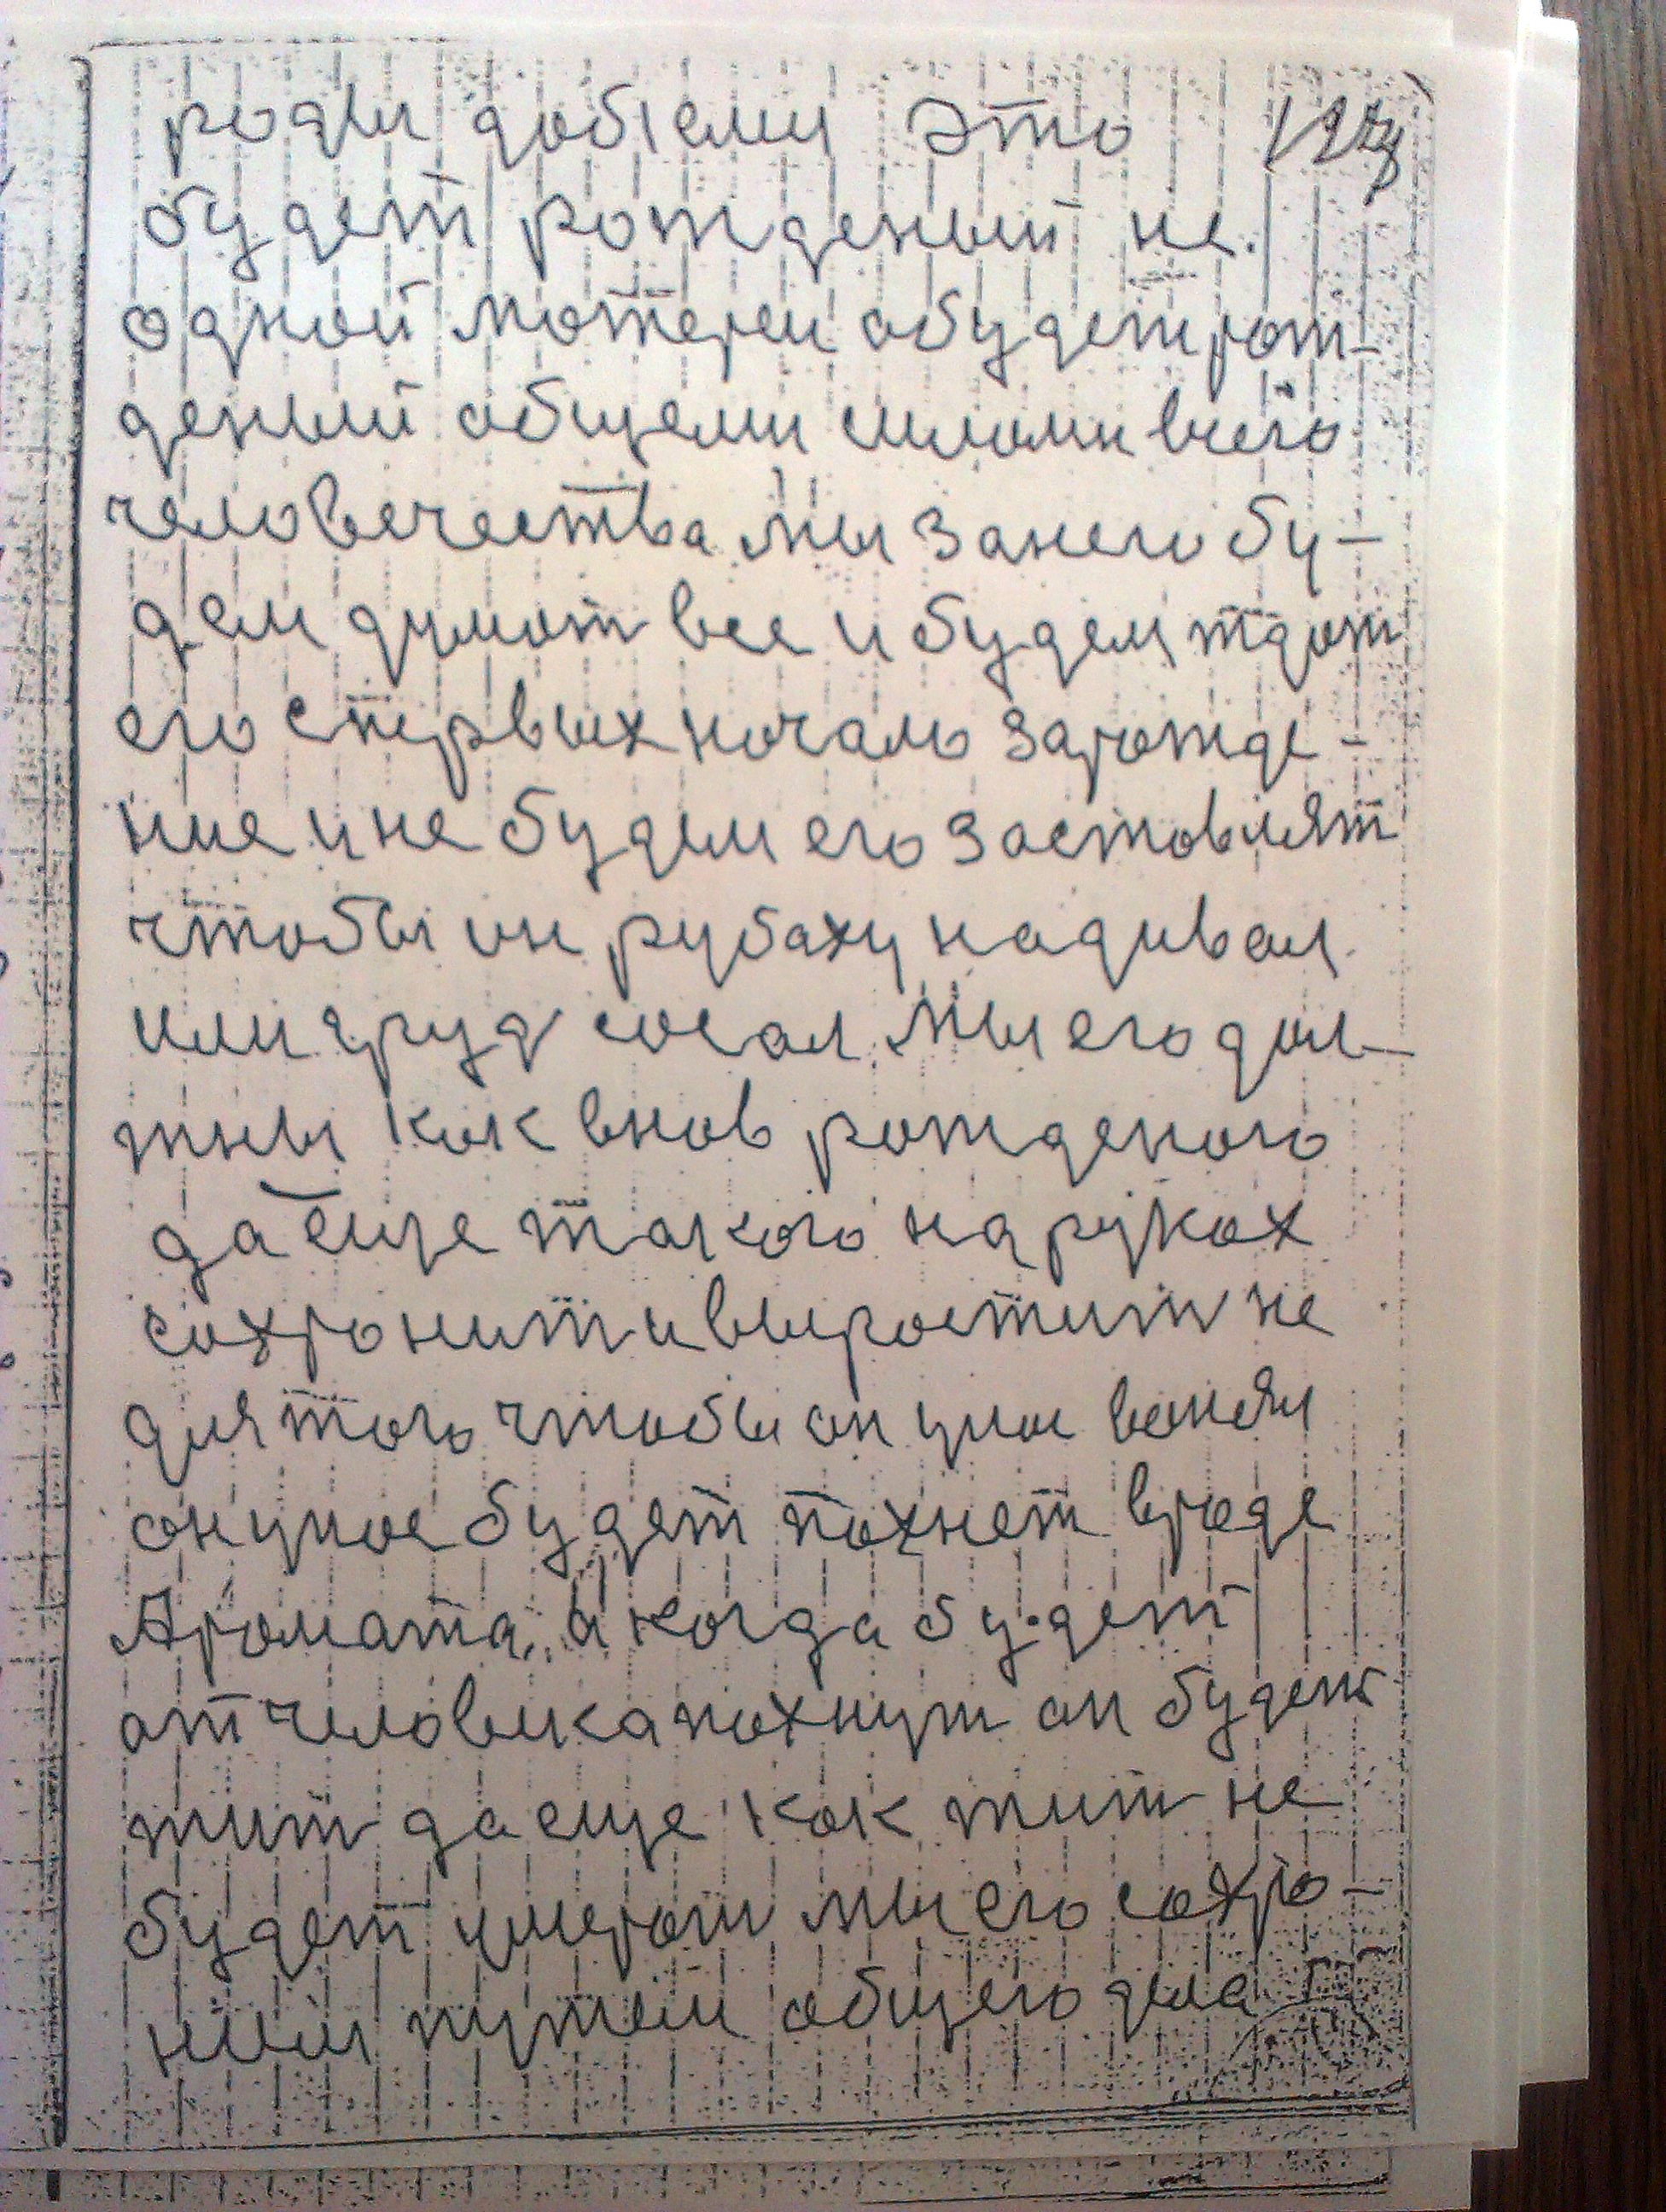 роды добiеми это
будет рожденый не
одной матерей абудет рож-
деный общеми силами всего
человечества мы занего бу-
дем думат все и будем ждат
его спервых начало зарожде-
ние и не будем его заставлят
чтобы он рубаху надивал
или груд сосал мы его дол-
жны как внов рожденого
да еще такого на руках
сохранит и выростит не
для того чтобы он умое ванял
он умое будет пахнет вроде
Аромата, а когда будет
от человика пахнут он будет
жит да еще как жит не
будет умерат мы его сохра-
ним путем общего дела